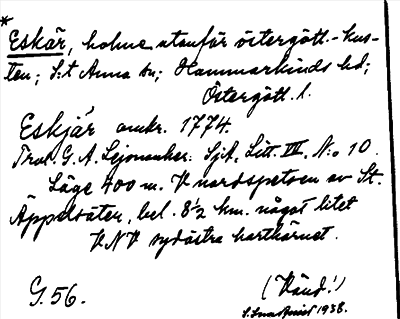 *
Eskär, holme utanför östergött.-kus-
ten; S:t Anna sn; Hammarkinds hd;
Östergötl. l.
Eskjär omkr. 1774.
Trol. G. A. Lejonanker. Sjk, Litt. III, N:o 10.
Läge 400 m. V nordspetsen av St.
Äppelsäter, bel. 8½ km. något litet
VNV sydöstra karthörnet.
G. 56. (Vänd!)
1938.